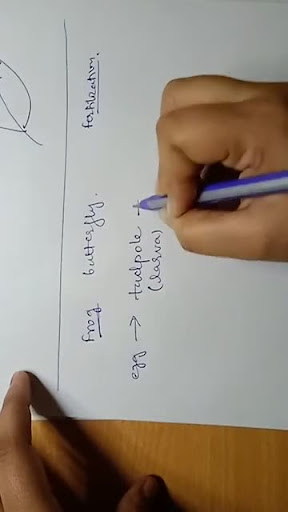 Frog butterfly. fertilization.
egg → tadpole →
(larva)